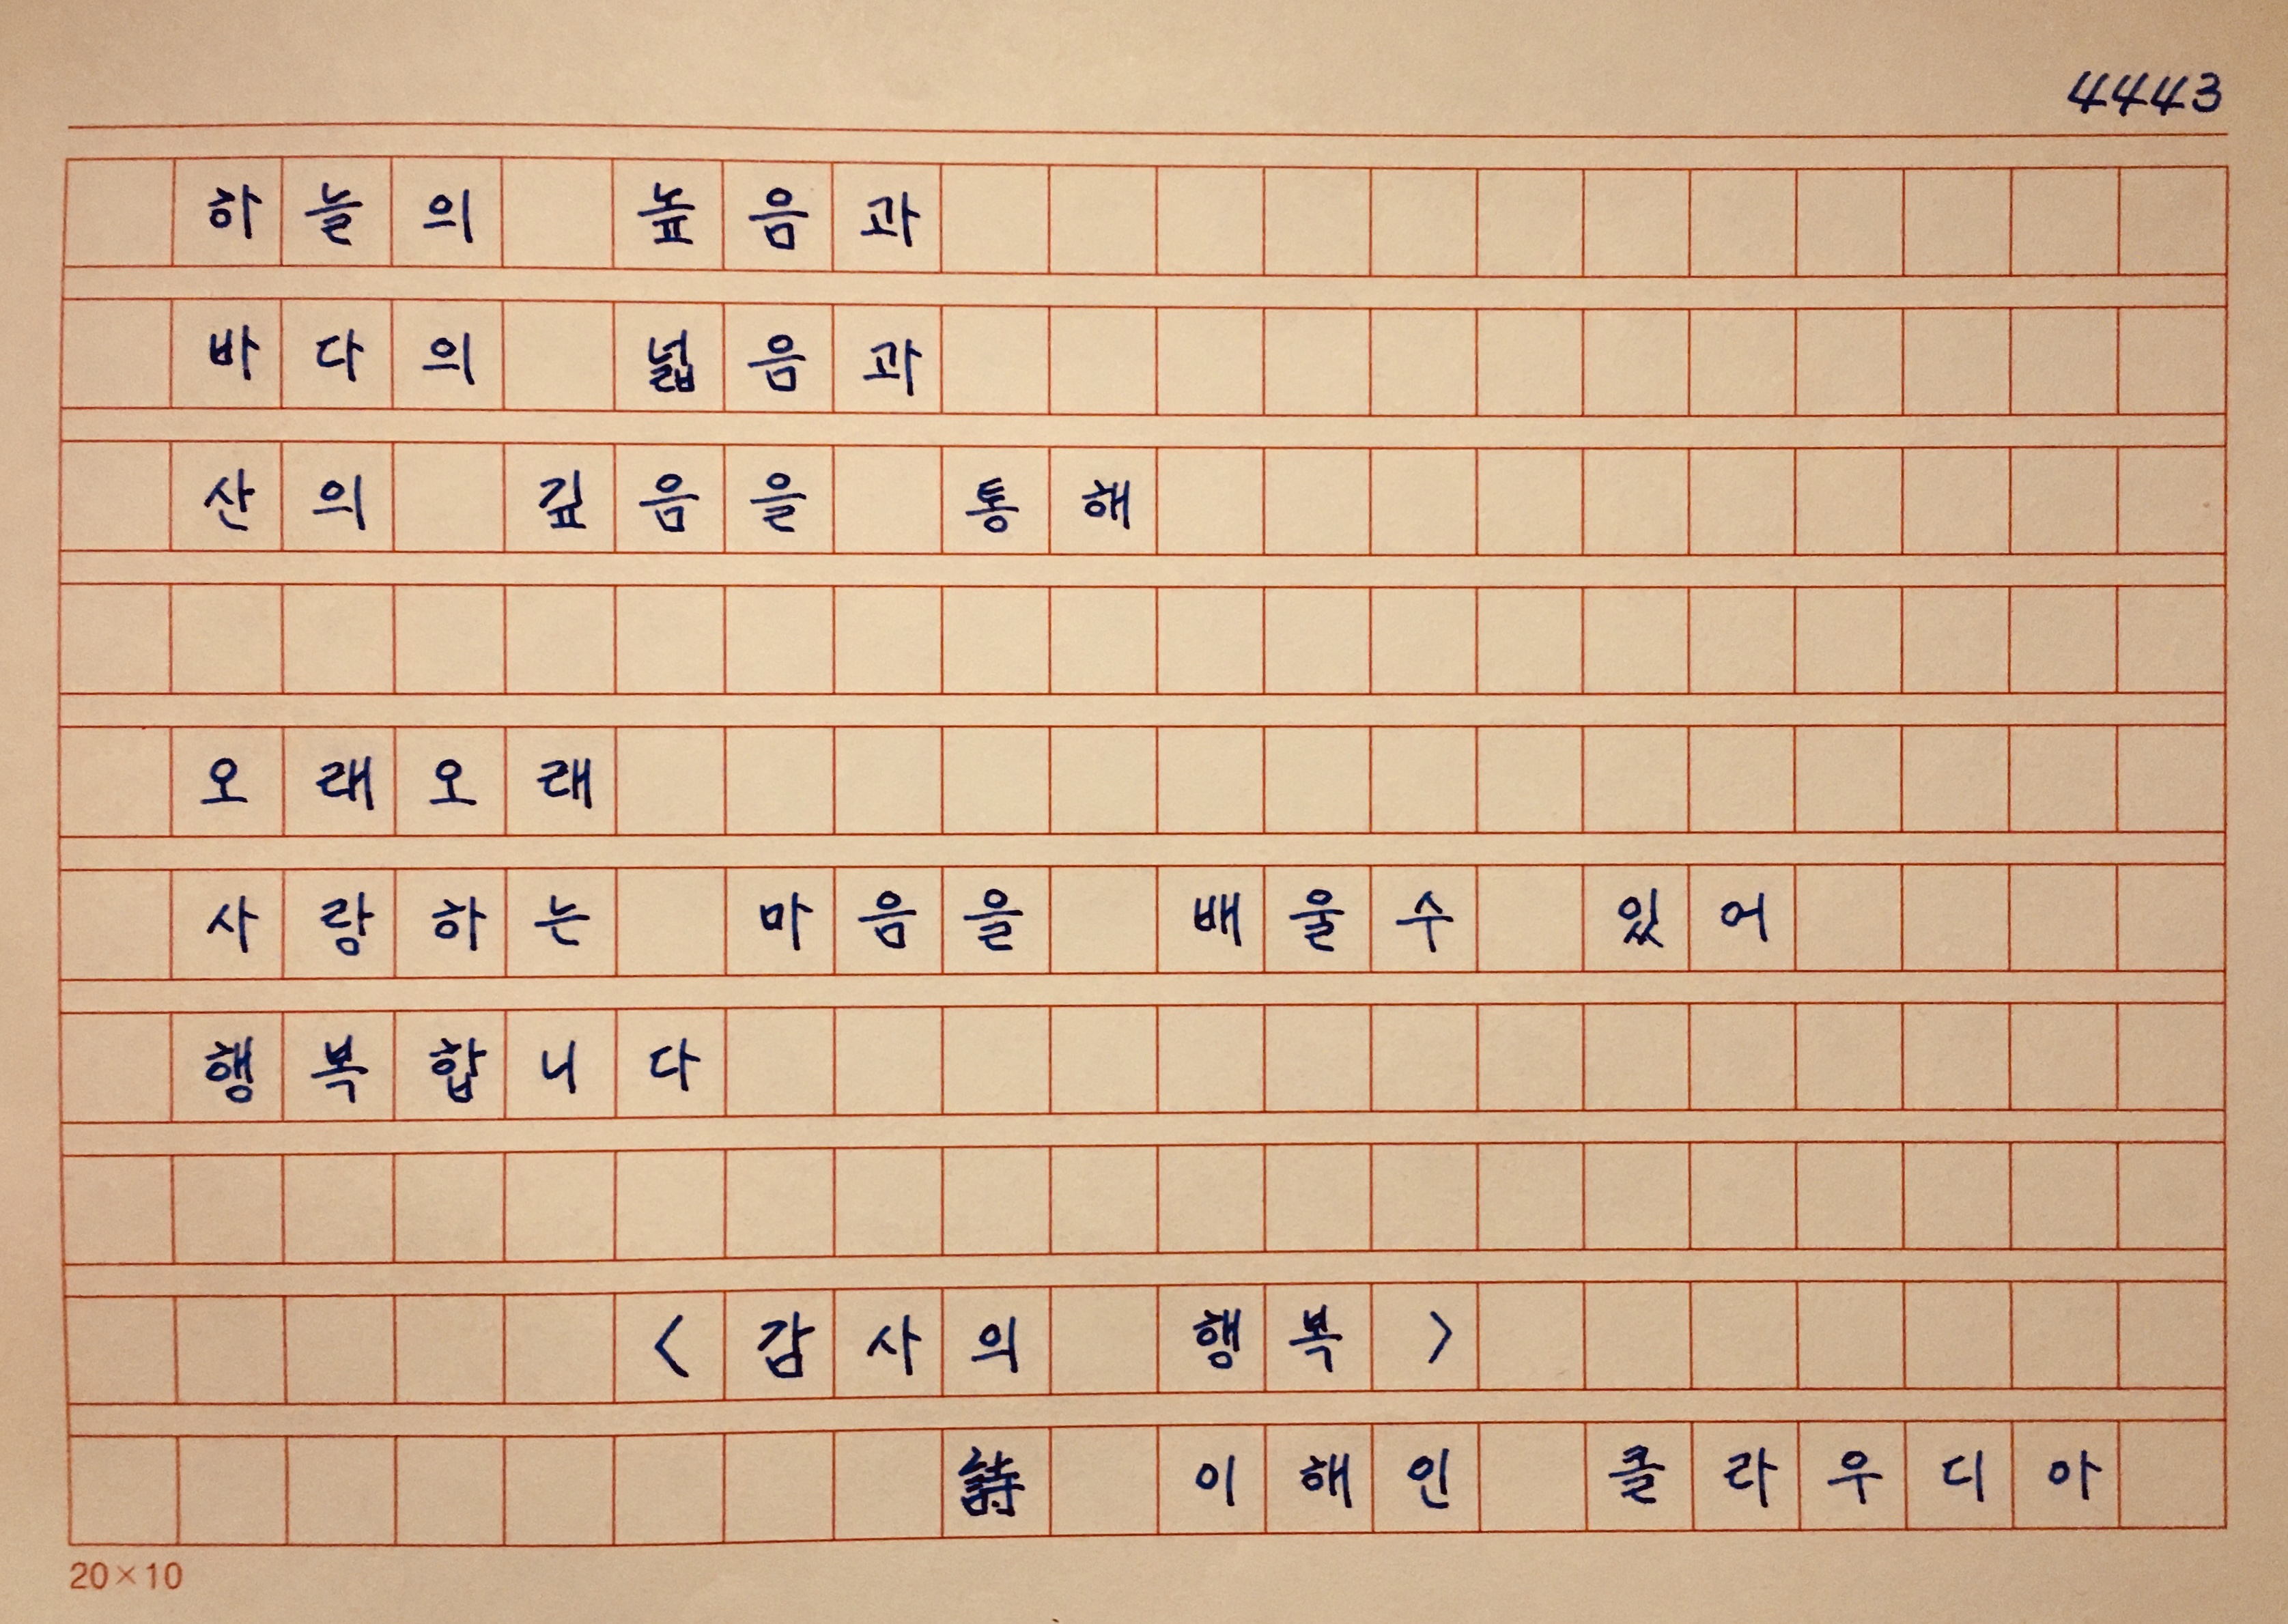 4443
하늘의 높음과
바다의 넓음과
산의 깊음을 통해
오래오래
사랑하는 마음을 배울수 있어
행복합니다
<감사의 행복>
詩 이해인 클라우디아
20×10